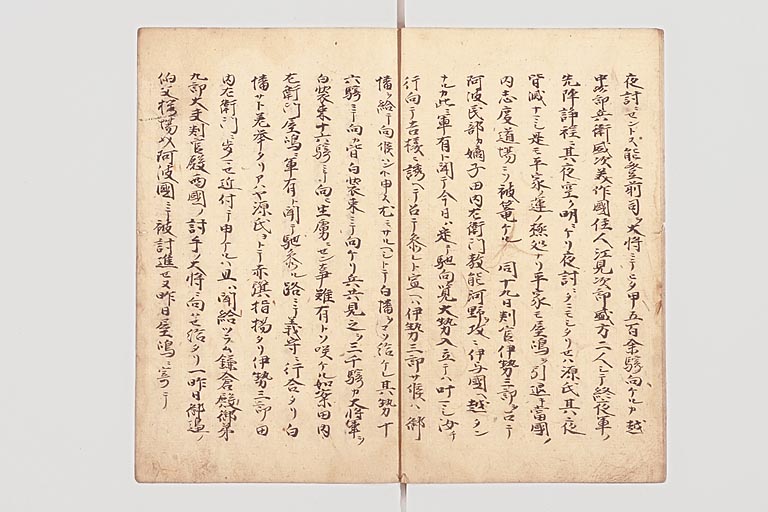 夜討ニセントス能登前司ヲ大将ニテ三タ甲五百余騎向ケルカ越
中次郎兵衛盛次美作國住人江見次郎盛方二人シテ終夜軍ノ
先陣諍程ニ其夜空ク明ニケリ夜討ヲタニモシタリセハ源氏其夜
皆滅ナマシ是ソ平家ノ運ノ極処ナリ平家モ屋嶋ヲ引退キ當國ノ
内志度道場ニソ被篭ケル 同十九日判官伊勢三郎ヲ召テ
阿波民部カ嫡子田内左衛門教能河野ヲ攻ニ伊与國ヘ越タン
ナルカ此ニ軍有ト聞テ今日ハ定テ馳向覧大勢入立テハ叶マシ汝チ
行向テ吉様ニ誘ヘテ召テ参レト宣ヘハ伊勢三郎サ候ハ、御
幡ヲ給テ向候ハント申ス尤モサルヘシトテ白幡ヲソ給ケレ其ハ勢十
六騎ニテ向カ皆白装束ニテ向ケリ兵共見之ヲ三千騎カ大将軍ヲ
白装束十六騎ニテ向テ生虜ニセン事難有トソ咲ケル如案田内
左衛門屋嶋ニ軍有ト聞テ馳参ル路ニテ義守ニ行合タリ白
幡サト差挙タリアハヤ源氏ヨトテ赤旗指揚タリ伊勢三郎田
内左衛門ニ歩マセ近付テ申ケルハ且ハ聞給ツラム鎌倉殿御弟
九郎大夫判官殿西國ノ討手ノ大将ニ向ハせ給タリ一昨日御邊ノ
伯父桜場以阿波國ニテ被討進セヌ昨日屋嶋ニ寄テ